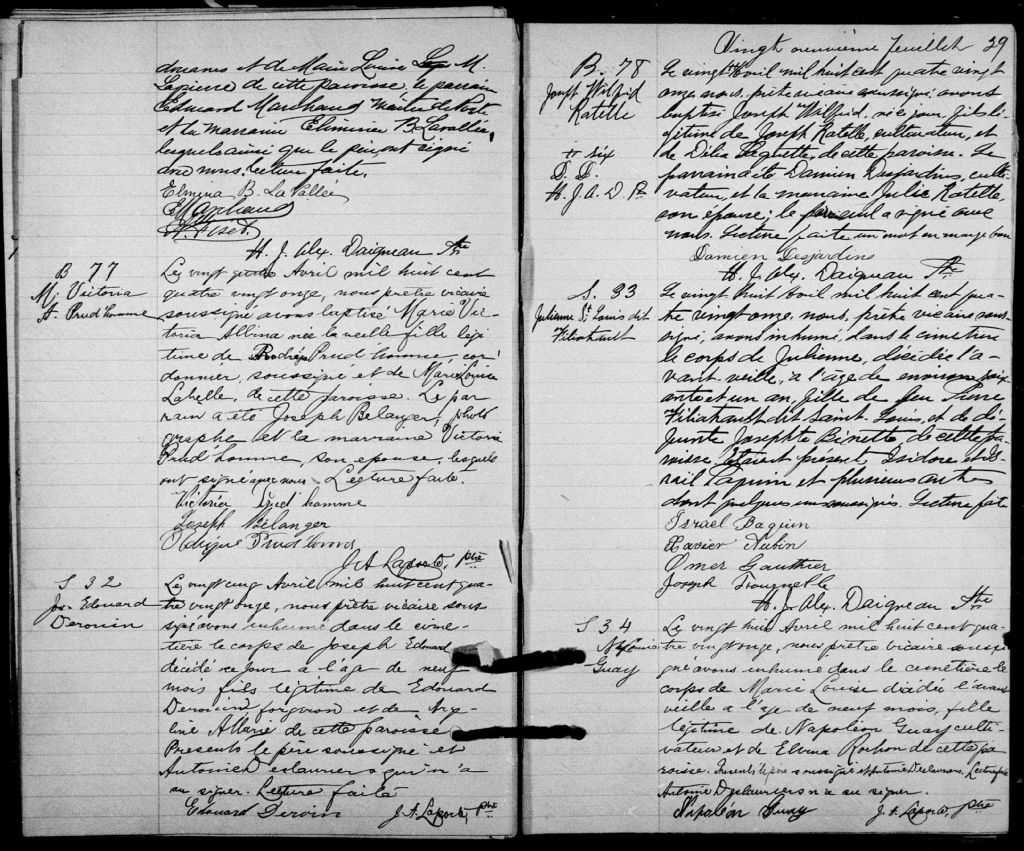 douanes et de Marie Louise M.
Lapierre de cette paroisse, le parrain
Edmond Marchand maitre de Poste
et la marraine Elmina B. Lavallée,
lesquels ainsi que le père, ont signé
avec nous. Lecture faite.
Elmina B. La Vallée
E Marchand
H. J. Alex. Daigneau Ptre
B 77
M. Victoria
A. Prud'homme
Le vingt quatre Avril mil huit cent
quatre vingt onze, nous prêtre vicaire
soussigné avons baptisé Marie Vic-
toria Albina née la veille fille légi-
time de Rodrigue Prud'homme, cor-
donnier, soussigné et de Marie Louise
Labelle, de cette paroisse. Le par
rain a été Joseph Belanger, photo
graphe et la marraine Victoria
Prud'homme, son epouse, lesquels
ont signé avec nous. Lecture faite.
Victoria Prud'homme
Joseph Bélanger
Rodrigue Prud'homme
J. A. Laporte, ptre
S 32
Jos. Edouard
Derouin
Le vingt cinq Avril mil huit cent qua-
tre vingt onze, nous prêtre vicaire sous
signé avons inhumé dans le cime-
tière le corps de Joseph Edouard
décédé ce jour à l'âge de neuf
mois fils légitime de Edouard
Derouin forgeron et de Ange-
line Allarie de cette paroisse
Présents le père soussigné et
Antoine Deslauriers qui n'a
su signer. Lecture faite
Edouard Deroin J. A. Laporte, ptre
Vingt neuvième feuillet 29
B. 78
Joseph Wilfrid
Ratelle
# six
D. D.
H. J. A. D. Ptre
Le vingt # Avril mil huit cent quatre vingt
onze nous, prêtre vicaire soussigné avons
baptisé Joseph Wilfrid, né ce jour, fils lé-
gitime de Joseph Ratelle, cultivateur, et
de Délia Paquette, de cette paroisse. Le
parrain a été Damien Desjardins, culti-
vateur, et la marraine Julie Ratelle,
son epouse; le seul a signé avec
nous. Lecture faite un mot en marge bon
Damien Desjardins
H. J. Alex. Daigneau Ptre
S. 33
Julienne St Louis dit
Filiatrault
Le vingt huit Avril mil huit cent qua-
tre vingt onze nous, prêtre vicaire sous-
signé, avons inhumé, dans le cimetière
le corps de Julienne, décédée l'a-
vant-veille, à l'âge de environ soix
ante et un an, fille de feu Pierre
Filiatrault dit Saint Louis, et de dé-
funte Josephte Binette, de cette pa-
roisse. Etaient présents Isidore et Is-
raël Paquin et plusieurs autres
dont quelques uns soussignés. Lecture faite
Israel Paquin
Xavier Aubin
Omer Gauthier
Joseph
H. J. Alex. Daigneau Ptre
S 34
M. Louise
Guay
Le vingt huit Avril mil huit cent qua-
tre vingt onze, nous prêtre vicaire soussi
gné avons inhumé dans le cimetière le
corps de Marie Louise décédée l'avant
veille a l'âge de neuf mois, fille
légitime de Napoléon Guay culti-
vateur et de Elvina Rochon de cette pa
roisse. Présents le père soussigné et Antoine Deslauriers. Lecture faite
Antoine Deslauriers n'a su signer.
Napoléon Guay J. A. Laporte, ptre